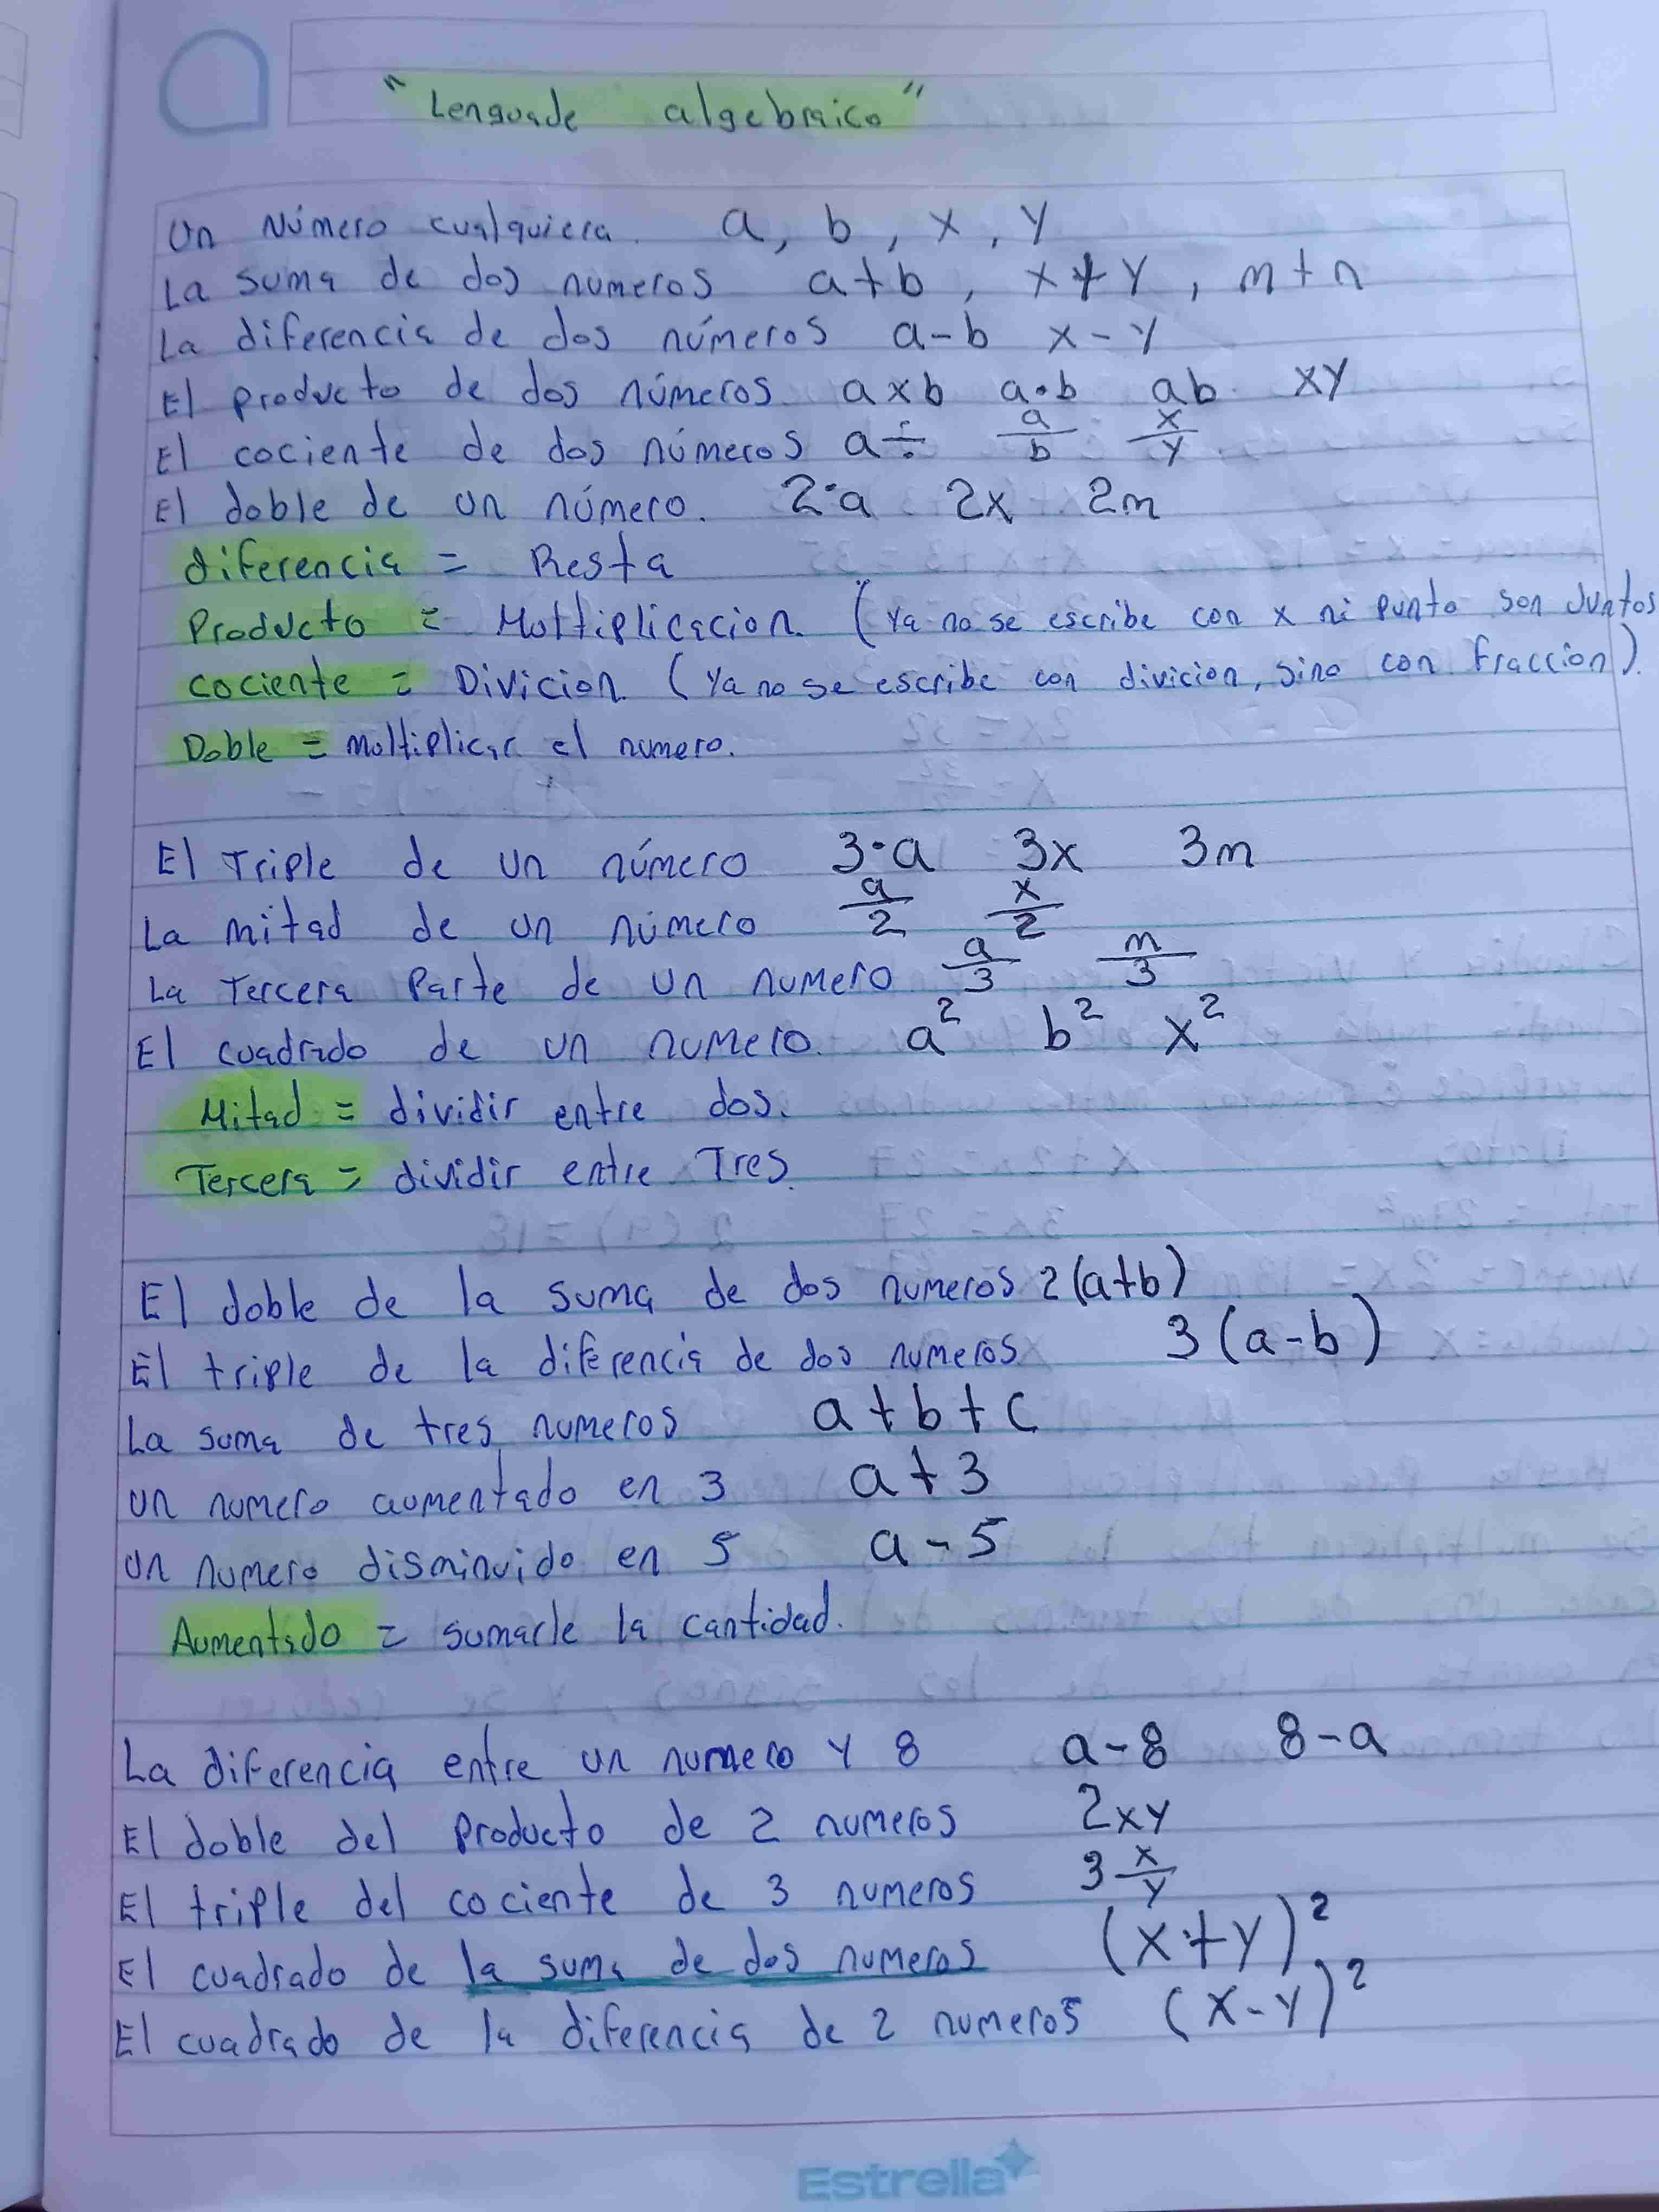 "Lenguade algebraico"
Un Número cualquiera. a, b, x, y
La suma de dos numeros a+b, x+y, m+n
La diferencia de dos números a-b x-y
El producto de dos números axb a·b ab xy
El cociente de dos números a÷ a/b x/y
El doble de un número. 2·a 2x 2m
diferencia = Resta
Producto = Moltiplicacion. (Ya no se escribe con x ni punto son Juntos
cociente = Divicion. (Ya no se escribe con divicion, sino con fraccion).
Doble = moltiplicar el numero.
El Triple de un número 3·a 3x 3m
La mitad de un número a/2 x/2
La Tercera Parte de un numero a/3 m/3
El cuadrado de un numero. a² b² x²
Mitad = dividir entre dos.
Tercera = dividir entre Tres.
El doble de la suma de dos numeros 2(a+b)
El triple de la diferencia de dos numeros 3(a-b)
La suma de tres numeros a+b+c
Un numero aumentado en 3 a+3
Un numero disminuido en 5 a-5
Aumentado = sumarle la cantidad.
La diferencia entre un numero y 8 a-8 8-a
El doble del producto de 2 numeros 2xy
El triple del cociente de 3 numeros 3 x/y
El cuadrado de la suma de dos numeros (x+y)²
El cuadrado de la diferencia de 2 numeros (x-y)²
Estrella